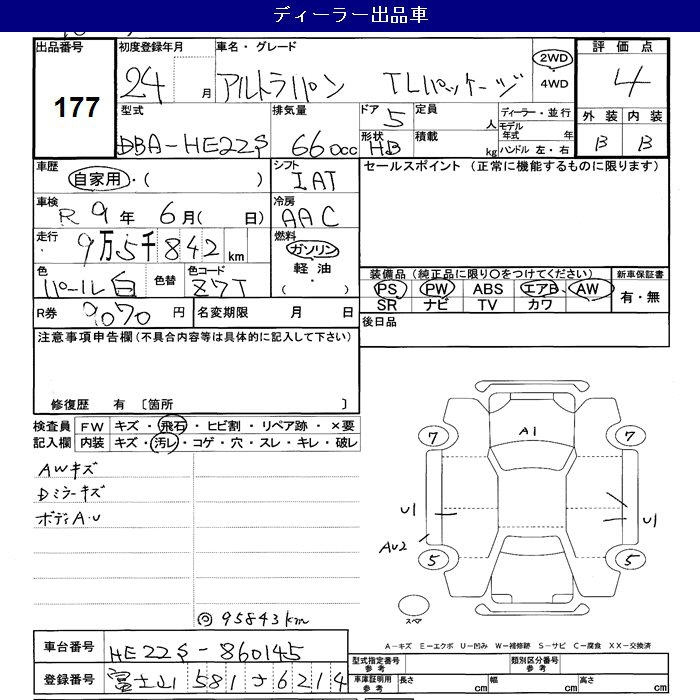 ディーラー出品車
出品番号
177
初度登録年月
24 月
車名・グレード
アルトラパン TLパッケージ
2WD
・
4WD
評価点
4
型式
DBA-HE22S
排気量
660cc
ドア 5
形状 HB
定員 人
積載 kg
ディーラー・並行
モデル年式 年
ハンドル 左・右
外装 内装
B B
車歴
自家用・( )
シフト
IAT
セールスポイント(正常に機能するものに限ります)
車検
R 9年 6月( 日)
冷房
AAC
走行
9万5千842km
燃料
ガソリン
軽油
・( )
色
パール白
色替
色コード
Z7T
装備品(純正品に限り○をつけてください)
新車保証書
PS PW ABS エアB AW
有・無
SR ナビ TV カワ
R券 9,070円
名変期限 月 日
後日品
注意事項申告欄(不具合内容等は具体的に記入して下さい)
修復歴 有 〔箇所 〕
検査員 FW キズ・飛石・ヒビ割・リペア跡・×要
記入欄 内装 キズ・汚レ・コゲ・穴・スレ・キレ・破レ
AWキズ
Dミラーキズ
ボディA・U
A1
7
7
U1
U1
AU2
5
5
スペア
◎95843km
A-キズ E-エクボ U-凹み W-補修跡 S-サビ C-腐食 XX-交換済
車台番号 HE22S-860145
登録番号 富士山581さ6214
型式指定番号
参考
類別区分番号
参考
車庫証明用
参考
長さ cm
幅 cm
高さ cm